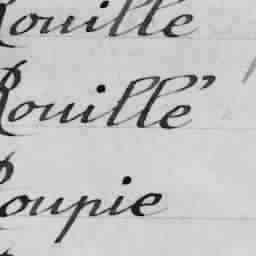 Rouille
Rouillé
Roupie